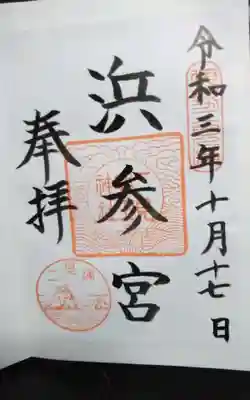 令和三年十月十七日
浜参宮
奉拝
二見浦